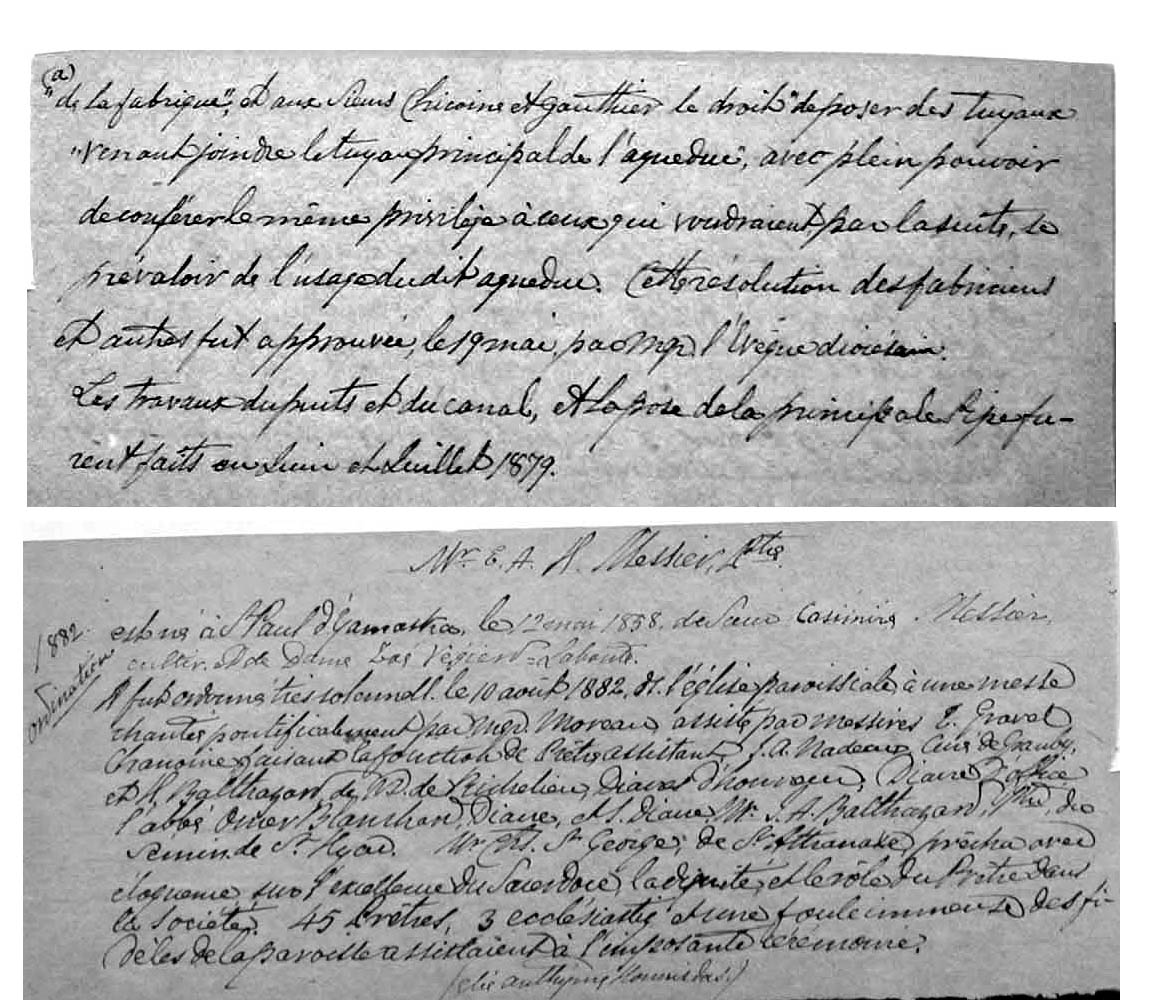 (a)
"de la fabrique", et aux Sieurs Chicoine et Gauthier le droit "de poser des tuyaux
"venant joindre le tuyau principal de l'aqueduc", avec plein pouvoir
de conférer le même privilège à ceux qui voudraient par la suite, se
prévaloir de l'usage du dit aqueduc. Cette résolution des fabriciens
et autres fut approuvée, le 19 mai, par Mgr. l'Evêque diocésain.
Les travaux du puits et du canal, et la pose de la principale pipe fu-
rent faits en Juin et Juillet 1879.
Mr. E. A. H. Messier, Ptre.
1882.
ordination
est né à St Paul d'Yamaska, le 12 mai 1858, de Sieur Casimire Messier,
cultiv. et de Dame Zoé Végiard = Labonté.
Il fut ordonné très solennell. le 10 août 1882, ds. l'église paroissiale à une messe
chantée pontificalement par Mgr. Moreau assisté par messires E. Gravel
Chanoine faisant la fonction de Prêtre assistant, J. A. Nadeau, Curé de Granby,
et H. Balthazard, de N. D. de Richelieu, Diacres d'honneur, Diacre d'office
l'abbé Omer Blanchard, Diacre, et S. Diacre Mr. J. A. Balthazard, du
Semin. de St. Hyac. Mr Chs. St George, de St Athanase, prêcha avec
éloquence, sur l'excellence du Sacerdoce, la dignité, et le rôle du Prêtre dans
la Société. 45 Prêtres, 3 ecclésiastiq et une foule immense des fi-
dèles de la paroisse assistaient à l'imposante cérémonie.
(élie anthyme hormisdas.)